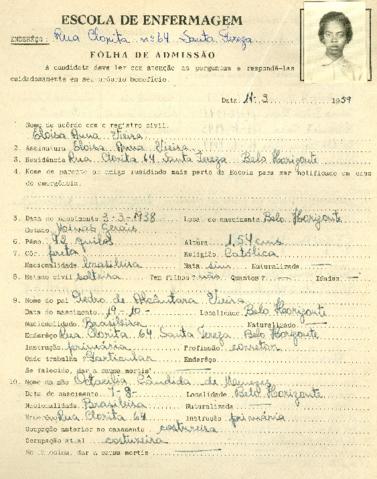 ESCOLA DE ENFERMAGEM
ENDERÊÇO: Rua Clorita nº 64 Santa Tereza
FOLHA DE ADMISSÃO
A candidata deve ler com atenção as perguntas e respondê-las
cuidadosamente em seu próprio benefício.
Data 11-3 1959
1. Nome de acôrdo com o registro civil.
Eloisa Anna Vieira
2. Assinatura Eloisa Anna Vieira
3. Residência Rua Clorita 64 Santa Tereza Belo Horizonte
4. Nome de parente ou amigo residindo mais perto da Escola para ser notificado em caso
de emergência.
5. Data do nascimento 3-3-1938 Local do nascimento Belo Horizonte
Estado Minas Gerais
6. Pêso quilos Altura 1,54 cms
7. Côr preta Religião Católica
Nacionalidade brasileira Nata sim Naturalizada
8. Estado civil solteira Tem filhos? não Quantos? Idades
9. Nome do pai Pedro de Alcântara Vieira
Data do nascimento 19-10- Localidade Belo Horizonte
Nacionalidade Brasileira Naturalizado
Enderêço Rua Clorita 64 Santa Tereza Belo Horizonte
Instrução primária Profissão corretor
Onde trabalha Particular Enderêço
Se falecido, dar a causa mortis
10. Nome da mãe Cândida de Menezes
Data do nascimento Localidade Belo Horizonte
Nacionalidade Brasileira Naturalizada
Enderêço Rua Clorita 64 Instrução primária
Ocupação anterior ao casamento costureira
Ocupação atual costureira
Se falecida, dar a causa mortis